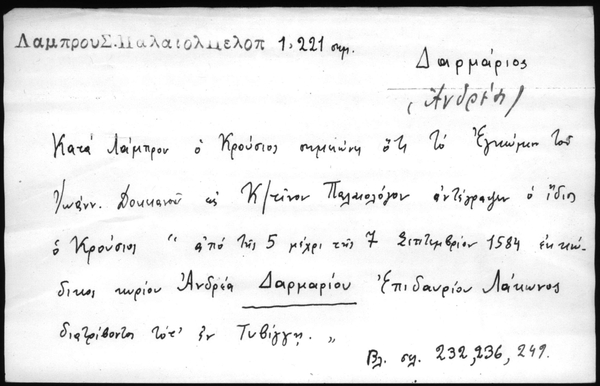 Λαμπρου Σ. Παλαιολ Πελοπ 1, 221 σημ.
Δαρμάριος
(Ἀνδρέας)
Κατά Λάμπρον ὁ Κρούσιος σημειώνη ὅτι τό Ἐγκώμιον τοῦ
Ἰωάνν. Δοκειανοῦ εἰς Κ/τῖνον Παλαιολόγον ἀντέγραψεν ὁ ἴδιος
ὁ Κρούσιος " ἀπό τῆς 5 μέχρι τῆς 7 Σεπτεμβρίου 1584 ἐκ κώ-
δικος κυρίου Ἀνδρέα Δαρμαρίου Ἐπιδαυρίου Λάκωνος
διατρίβοντος τότ' ἐν Τυβίγγῃ. "
Βλ. σελ. 232, 236, 249.